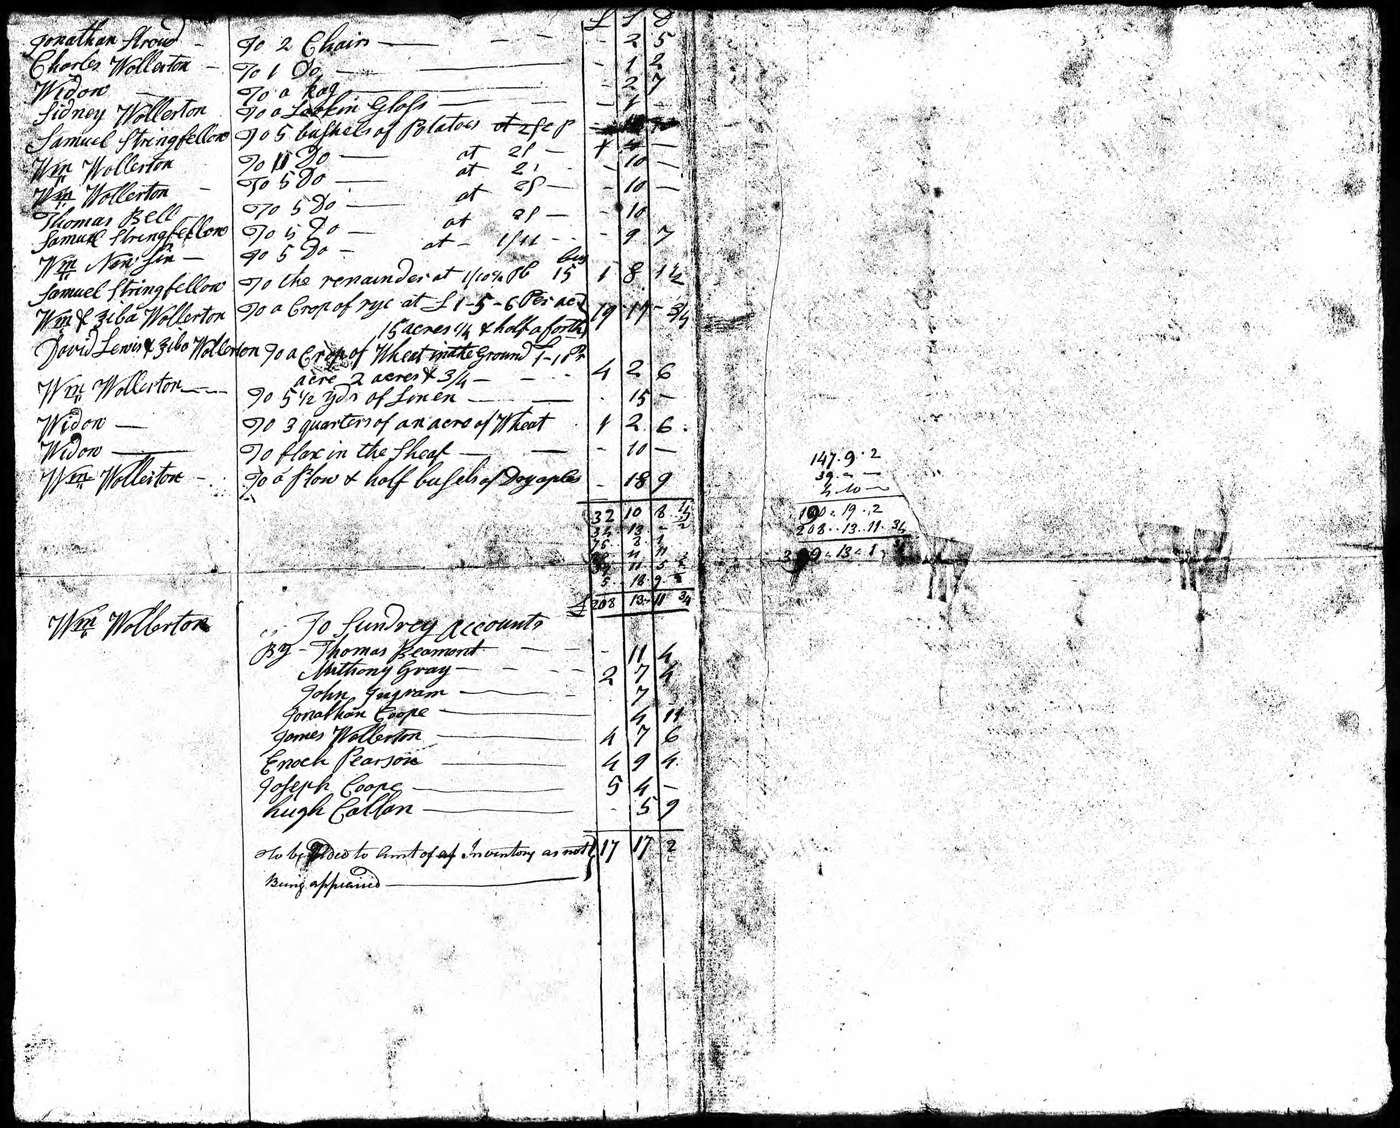 £ S D
Jonathan Stroud - To 2 Chairs - - 2 5
Charles Wollerton - To 1 Do - - 1 2
Widow - To a kag - - 2 7
Sidney Wollerton To a Lookin Glass - - 1 -
Samuel Stringfellow To 5 bushels of Potatoes at
Wm Wollerton To 11 Do - at 2s - 1 4 -
Wm Wollerton - To 5 Do - at 2s - - 10 -
Thomas Bell To 5 Do - at 2s - - 10 -
Samuel Stringfellow To 5 Do - at 2s - - 10
Wm To 5 Do - at - 1/11 - - 9 7
Samuel Stringfellow To the remainder at 1/10½ Pb 15 bus 1 8 1½
Wm & Ziba Wollerton To a Crop of rye at £1-5-6 Per acre 19 19 - 3/4
15 acres 1/4 & half a forth
David Lewis & Ziba Wollerton To a Crop of Wheat in the Ground 1-1 Pr
acre 2 acres & 3/4 - 4 2 6
Wm Wollerton - To 5 1/2 yds of Linen - - 15 -
Widow - To 3 quarters of an acre of Wheat 1 2 6
Widow - To flax in the Sheaf - - 10 -
Wm Wollerton - To a Plow & half bushels of Dryaples - 18 9
32 10 8
34 13 -
75 8 1
11 11
39 11 5
5 18 9
£208 13 11 3/4
147.9.2
39 - -
4 10 -
190.19.2
208..13.11.3/4
399.13.1
Wm Wollerton To Sundrey Accounts
By - Thomas Beamont - - - 11 4
Anthony Gray - - - 2 7 4
John Ingram - 7
Jonathan Coope - 4 11
James Wollerton - 4 7 6
Enoch Pearson - 4 9 4
Joseph Coope - 5 4 -
Hugh Callan - - 5 9
To be Added to Amt of Inventory as not 17 17 2
Being appraised